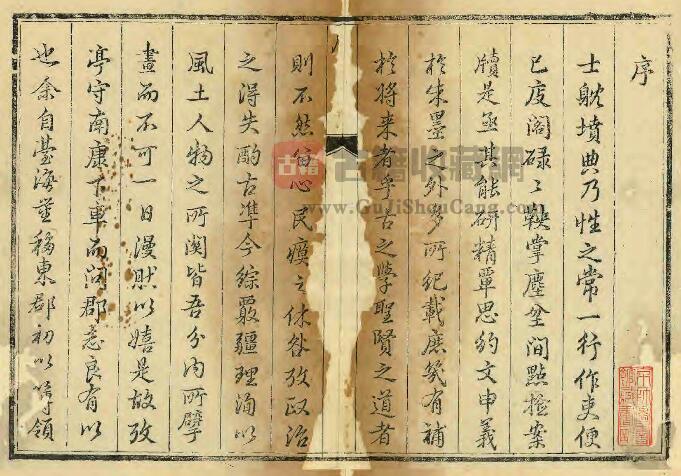 序
士躭墳典乃性之常一行作吏便
已庋阁碌々鞅掌塵坌間點撿案
牘是亟其能研精覃思約文申義
於朱墨之外多所纪載庶幾有補
於将来者乎古之學聖賢之道者
則不然心民瘼之休咎攷政治
之得失酌古準今综覈疆理以
風土人物之所関皆吾分内所擘
畫而不可一日漫然以嬉是故攷
亭守南康下車而问郡志良有以
也余自臺海量移東郡初以領
古籍
古籍收藏網
www.GuJiShouCang.com